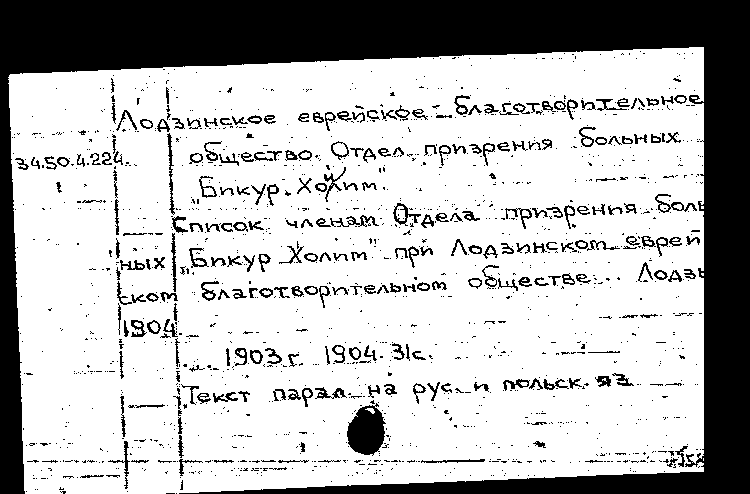 Лодзинское еврейское благотворительное
34.50.4.224. общество. Отдел призрения больных
„Бикур. Холим".
Список членам Отдела призрения боль
ных „Бикур Холим" при Лодзинском еврей
ском благотворительном обществе... Лодзь
1904.
1903 г. 1904. 31с.
Текст парал. на рус. и польск. яз.